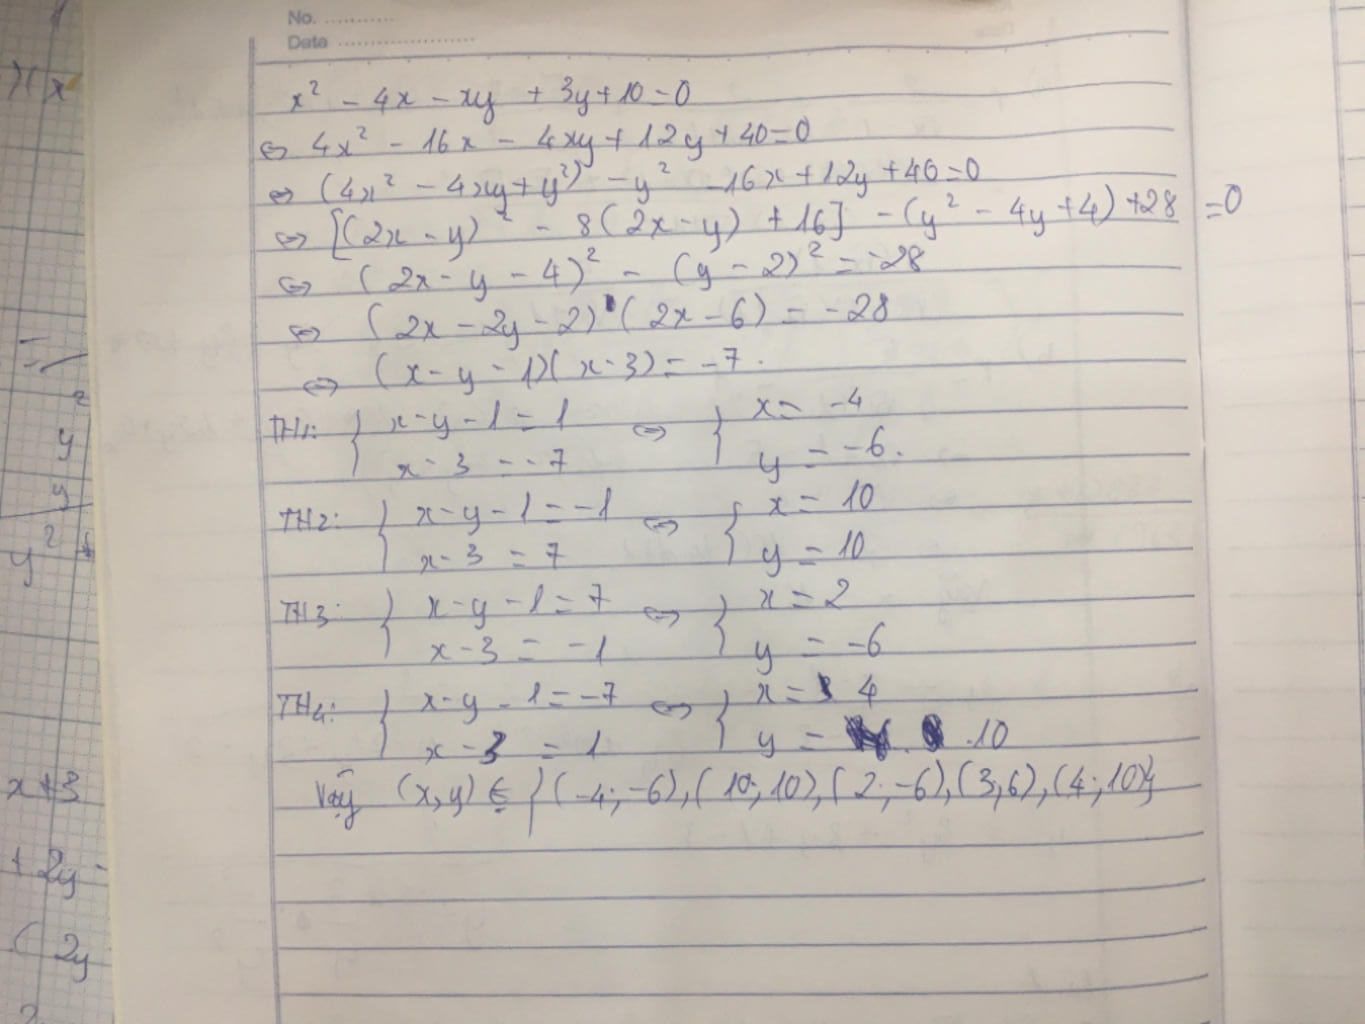 No. ............
Date ........................
)(x
x² - 4x - xy + 3y + 10 = 0
⇔ 4x² - 16x - 4xy + 12y + 40 = 0
⇔ (4x² - 4xy + y²) - y² - 16x + 12y + 40 = 0
⇔ [(2x - y)² - 8(2x - y) + 16] - (y² - 4y + 4) + 28 = 0
⇔ (2x - y - 4)² - (y - 2)² = -28
⇔ (2x - 2y - 2)(2x - 6) = -28
⇔ (x - y - 1)(x - 3) = -7.
TH1: { x - y - 1 = 1 ⇔ { x = -4
x - 3 = -7 y = -6.
TH2: { x - y - 1 = -1 ⇔ { x = 10
x - 3 = 7 y = 10
TH3: { x - y - 1 = 7 ⇔ { x = 2
x - 3 = -1 y = -6
TH4: { x - y - 1 = -7 ⇔ { x = 4
x - 3 = 1 y = 10
Vậy (x, y) ∈ {(-4; -6), (10; 10), (2; -6), (3; 6), (4; 10)}
y
y
y²
x + 3
+ 2y
( 2y